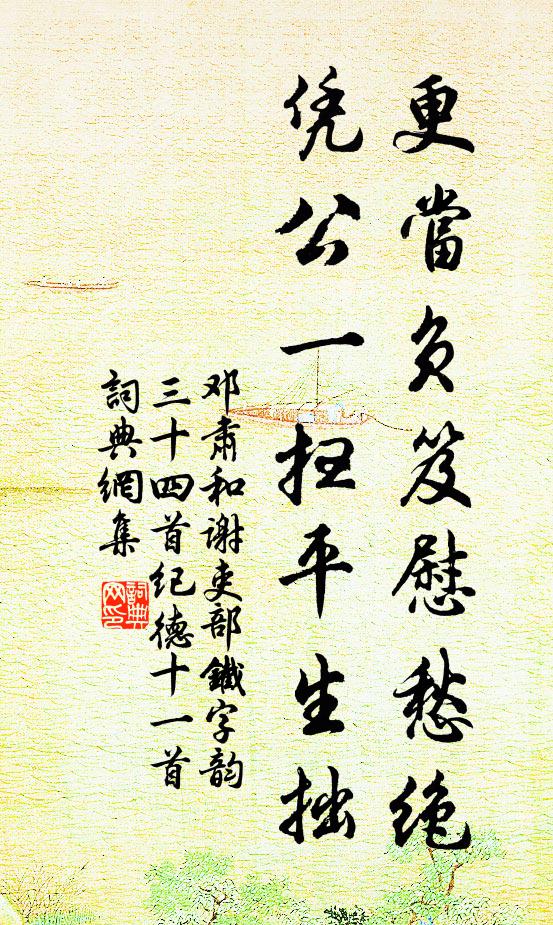 更當负笈慰愁绝
凭公一扫平生拙
邓肃和谢吏部鐵字韵
三十四首纪德十一首
詞典網集
詞典
网印